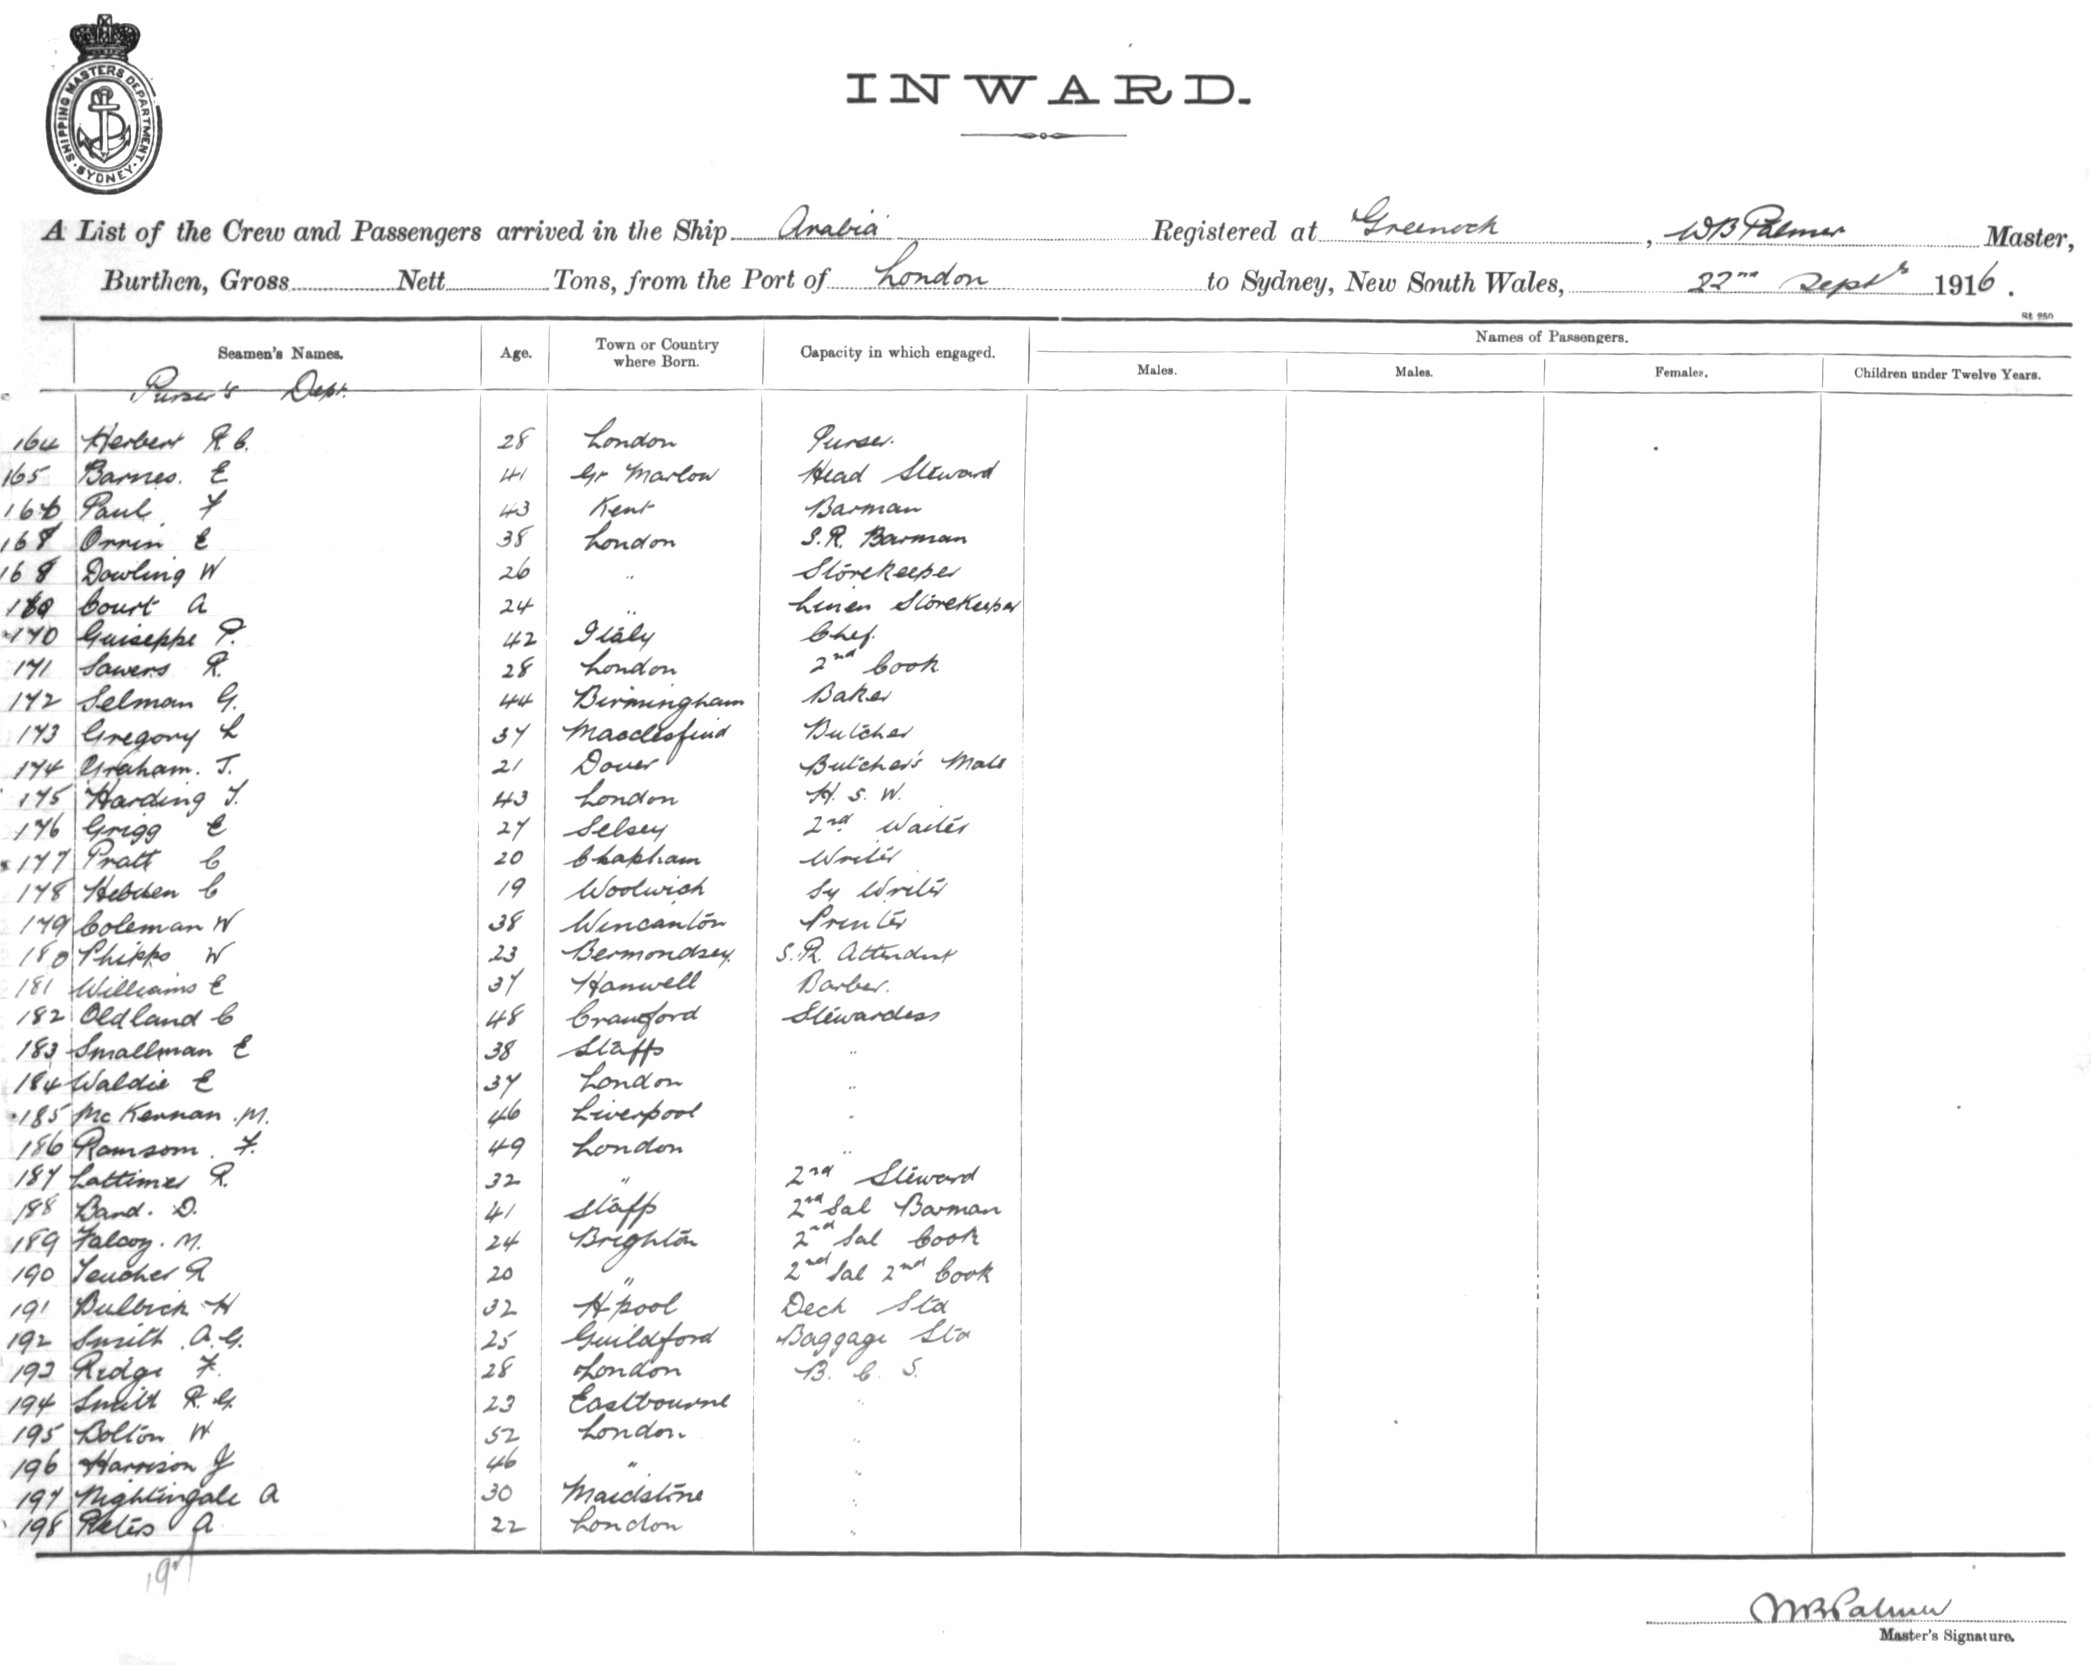 SHIPPING MASTERS DEPARTMENT. SYDNEY
INWARD.
A List of the Crew and Passengers arrived in the Ship Arabia Registered at Greenock, WB Palmer Master,
Burthen, Gross Nett Tons, from the Port of London to Sydney, New South Wales, 22nd Septr 1916.
St 250
Seamen's Names. Age. Town or Country where Born. Capacity in which engaged. Names of Passengers.
Males. Males. Females. Children under Twelve Years.
Purser's Dept.
164 Herbert R C. 28 London Purser.
165 Barnes. E 41 Gr Marlow Head Steward
166 Paul F 43 Kent Barman
168 Orrin E 38 London S.R. Barman
168 Dowling W 26 " Storekeeper
Court A 24 " Linen Storekeeper
170 Guiseppe P. 42 Italy Chef.
171 Sawers R. 28 London 2nd Cook
172 Selman G. 44 Birmingham Baker
173 Gregory L 37 Macclesfield Butcher
174 Graham. J. 21 Dover Butcher's Mate
175 Harding T. 43 London H. S. W.
176 Grigg E 27 Selsey 2nd Waiter
177 Pratt C 20 Chapham Writer
178 Hebden C 19 Woolwich Sy Writer
179 Coleman W 38 Wincanton Printer
180 Phipps W 23 Bermondsey. S.R. Attendent
181 Williams E 37 Hanwell Barber.
182 Oldland C 48 Crawford Stewardess
183 Smallman E 38 Staffs "
184 Waldie E 37 London "
185 McKennan. M. 46 Liverpool "
186 Ramsom. F. 49 London "
187 Lattimer R. 32 " 2nd Steward
188 Band. D. 41 Staffs 2nd Sal Barman
189 Falcoy. M. 24 Brighton 2nd Sal Cook
190 Teucher R 20 " 2nd Sal 2nd Cook
191 Bulbick H 32 H-pool Deck Std
192 Smith. A. G. 25 Guildford Baggage Std
193 Ridge F. 28 London B. C. S.
194 Smith R. G. 23 Eastbourne "
195 Bolton W 52 London. "
196 Harrison J 46 " "
197 Nightingale A 30 Maidstone "
198 Peters A 22 London "
197
WB Palmer
Master's Signature.